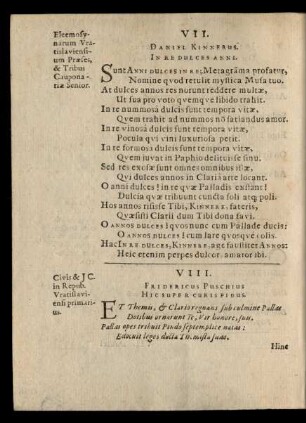 VII.
Eleemosy-
narum Vra-
tislaviensi-
um Præses,
& Tribus
Caupona-
riæ Senior.
DANIEL KINNERUS.
IN RE DULCES ANNI.
SUnt ANNI DULCES IN RE; Metagrãma profatur,
Nomine qvod retulit mystica Musa tuo.
At dulces annos res norunt reddere multæ,
Ut sua pro voto qvemqve libido trahit.
In re nummosâ dulcis sunt tempora vitæ,
Qvem trahit ad nummos nõ satiandus amor.
In re vinosâ dulcis sunt tempora vitæ,
Pocula qvi vini luxuriosa petit.
In re formosâ dulcis sunt tempora vitæ,
Qvem juvat in Paphio
Sed res exosæ sunt omnes omnibus istæ,
Qvi dulces annos in Clarii arte locant.
O anni dulces! in re quæ Palladis exstant!
Dulcia quæ tribuunt cuncta soli atq; poli.
Hos annos risisse Tibi, KINNERE, fateris,
Quæsisti Clarii dum Tibi dona favi.
O ANNOS DULCES! qvos nunc cum Pallade ducis:
O ANNOS DULCES! cum lare qvosque colis.
Hac IN RE DULCES, KINNERE, age faustiter ANNOS:
Heic etenim perpes dulcor, amator ibi.
VIII.
Civis & JC.
in Repub.
Vratislavi-
ensi prima-
rius.
FRIDERICUS PUSCHIUS
HIC SUPER CURIS FIDUS.
ET Themis, & Clario regnans sub culmine Pallas
Dotibus ornarunt Te, Vir honore, suis.
Pallas opes tribuit Pindo septemplice natas:
Edicuit leges docta Themista suas.
Hinc